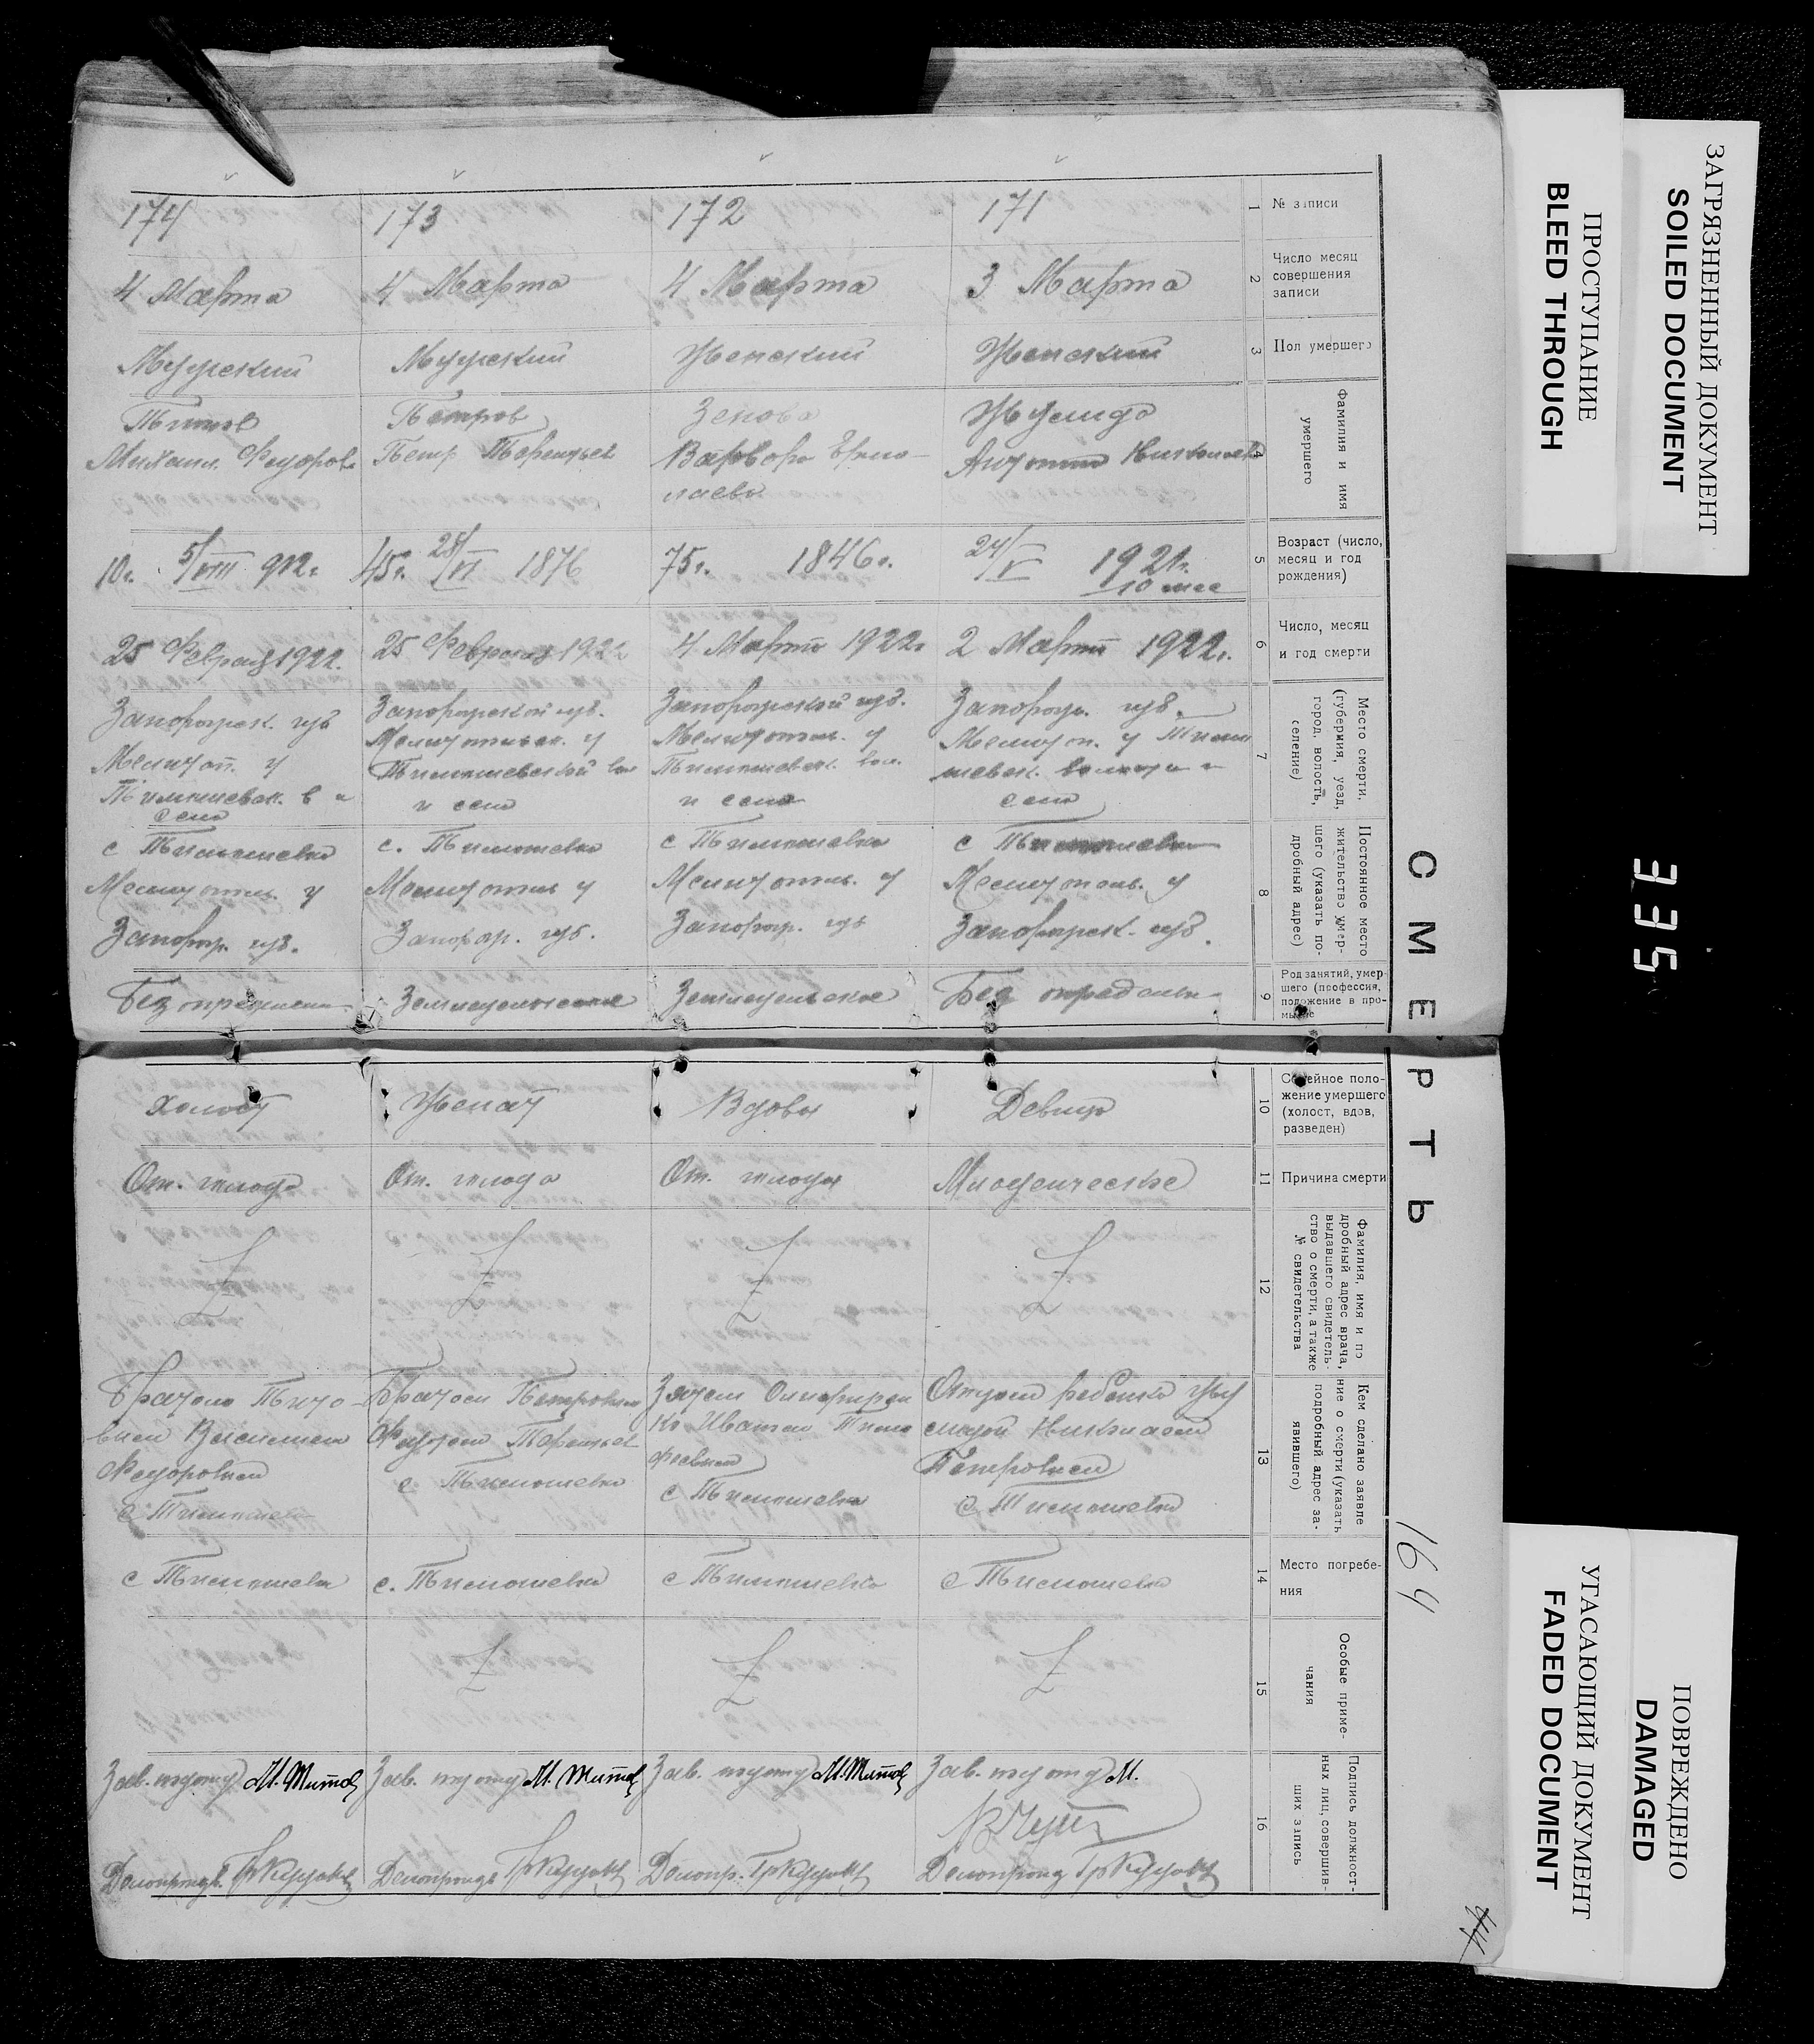 ЗАГРЯЗНЕННЫЙ ДОКУМЕНТ
SOILED DOCUMENT
ПРОСТУПАНИЕ
BLEED THROUGH
335
ПОВРЕЖДЕНО
DAMAGED
УГАСАЮЩИЙ ДОКУМЕНТ
FADED DOCUMENT
СМЕРТЬ
164
1
№ записи
171
172
173
174
2
Число месяц
совершения
записи
3 Марта
4 Марта
4 Марта
4 Марта
3
Пол умершего
Женский
Женский
Мужский
Мужский
4
Фамилия и имя
умершего
Зенова
Варвара
Петров
Петр Терентьев
Титов
Михаил Федоров
5
Возраст (число,
месяц и год
рождения)
24/V 1921г.
10 мес
75г. 1846г.
45г. 28/VI 1876
10г. 5/VIII 912г
6
Число, месяц
и год смерти
2 Марта 1922г.
4 Марта 1922г
25 Февраля 1922
25 Февраля 1922.
7
Место смерти,
(губерния, уезд,
город, волость,
селение)
Запорож. губ.
Мелитоп. у Тимо
шевск. волости и
село
Запорожской губ.
Мелитопол. у
Тимошевск. вол.
и село
Запорожской губ.
Мелитопольск. у
Тимошевской вол
и село
Запорожск. губ
Мелитоп. у
Тимошевск. в и
село
8
Постоянное место
жительство умер-
шего (указать по-
дробный адрес)
с Тимошевка
Мелитополь. у
Запорожск. губ.
с Тимошевка
Мелитопль. у
Запорож. губ
с. Тимошевка
Мелитопль у
Запорож. губ.
с Тимошевка
Мелитопль. у
Запорож. губ.
9
Род занятий, умер-
шего (профессия,
положение в про-
мысле
Без определен
Земледельческое
Земледельческое
Без определен
10
Семейное поло-
жение умершего
(холост, вдов,
разведен)
Девица
Вдова
Женат
Холост
11
Причина смерти
Младенческая
От. голода
От. голода
От. голода
12
Фамилия, имя и по
дробный адрес врача,
выдавшего свидетель-
ство о смерти, а также
№ свидетельства
Z
Z
Z
Z
13
Кем сделано заявле
ние о смерти (указать
подробный адрес за-
явившего)
Отцом ребенка
Николаем
Петровым
с Тимошевка
Зятем
Иваном Тимо
феевым
с Тимошевка
Братом Петровым
Федором Терентьев
с Тимошевка
Братом Тито-
вым Василием
Федоровым
с Тимошевка
14
Место погребе-
ния
с Тимошевка
с Тимошевка
с. Тимошевка
с Тимошевка
15
Особые приме-
чания
Z
Z
Z
16
Подпись должност-
ных лиц, совершив-
ших запись
Зав. подотд М.
Делопроизв
Зав. подотд М. Титов
Делопр.
Зав. подотд М. Титов
Делопроизв
Зав. подотд М. Титов
Делопроизв.